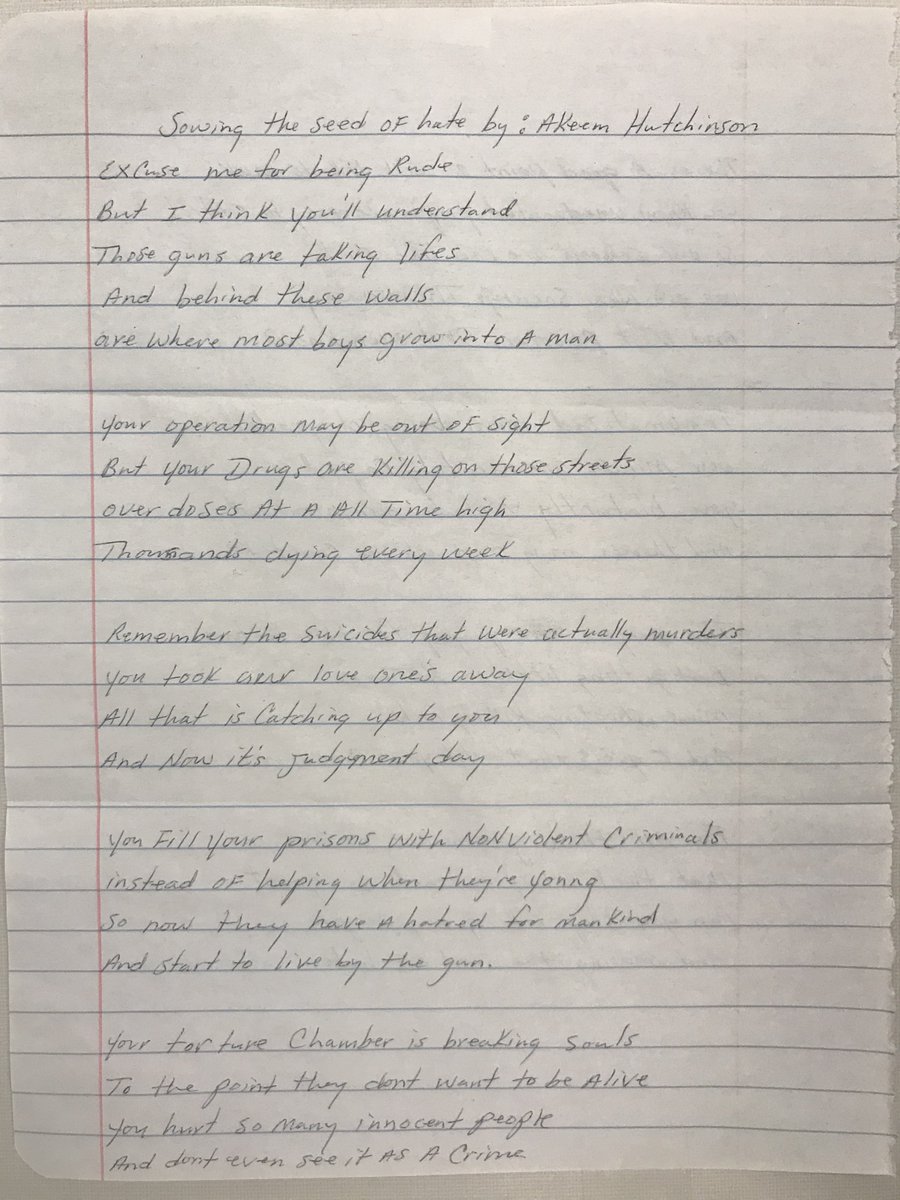 Sowing the seed of hate by: Akeem Hutchinson
Excuse me for being Rude
But I think you'll understand
Those guns are taking lifes
And behind these walls
are where most boys grow into A man
Your operation may be out of sight
But your Drugs are killing on those streets
over doses At A All Time high
Thousands dying every week
Remember the suicides that were actually murders
you took our love one's away
All that is Catching up to you
And Now it's judgment day
You Fill your prisons with NoNviolent Criminals
instead of helping when they're young
So now they have A hatred for mankind
And start to live by the gun.
Your torture Chamber is breaking souls
To the point they dont want to be Alive
You hurt so many innocent people
And dont even see it As A Crime